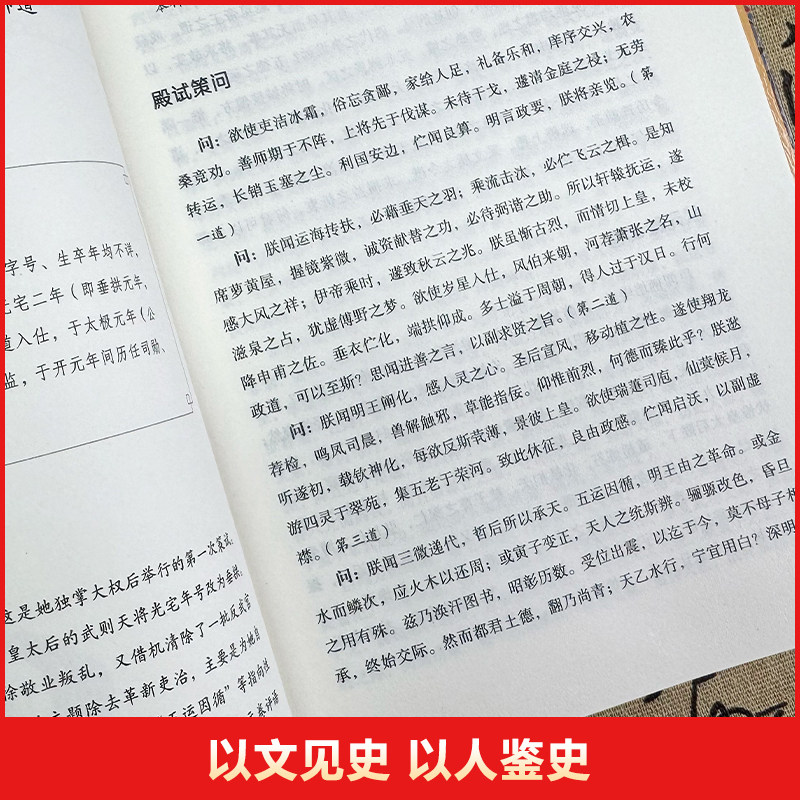 字号、生卒年均不详，
光宅二年（即垂拱元年，
道入仕，于太极元年（公
监，于开元年间历任司勋、
这是她独掌大权后举行的第一次策试，
皇太后的武则天将光宅年号改为垂拱，
徐敬业叛乱，又借机清除了一批反武官
主题除去革新吏治，主要是为她自
五运因循”等指向武
殿试策问
问：欲使吏洁冰霜，俗忘贪鄙，家给人足，礼备乐和，庠序交兴，农
桑竞劝。善师期于不阵，上将先于伐谋。未待干戈，遽清金庭之祲；无劳
转运，长销玉塞之尘。利国安边，伫闻良算。明言政要，朕将亲览。（第
一道）
问：朕闻运海抟扶，必藉垂天之羽；乘流击汰，必伫飞云之楫。是知
席萝黄屋，握镜紫微，诚资献替之功，必待弼谐之助。所以轩辕抚运，遂
感大风之祥；伊帝乘时，遂致秋云之兆。朕虽惭古烈，而情切上皇，未校
滋泉之占，犹虚傅野之梦。欲使岁星入仕，风伯来朝，河荐萧张之名，山
降申甫之佐。垂衣伫化，端拱仰成。多士溢于周朝，得人过于汉日。行何
政道，可以至斯？思闻进善之言，以副求贤之旨。（第二道）
问：朕闻明王阐化，感人灵之心。圣后宣风，移动植之性。遂使翔龙
荐检，鸣凤司晨，兽解触邪，草能指佞。仰惟前烈，何德而臻此乎？朕逖
听遂初，载钦神化，每欲反斯莸薄，景彼上皇。欲使瑞萐司庖，仙蓂候月，
游四灵于翠苑，集五老于荣河。致此休征，良由政感。伫闻启沃，以副虚
襟。（第三道）
问：朕闻三微递代，哲后所以承天。五运因循，明王由之革命。或金
水而鳞次，应火木以还周；或寅子变正，天人之统斯辨。骊騵改色，昏旦
之用有殊。兹乃涣汗图书，昭彰历数。受位出震，以迄于今，莫不母子相
承，终始交际。然而都君土德，翻乃尚青；天乙水行，宁宜用白？深明
以文见史 以人鉴史